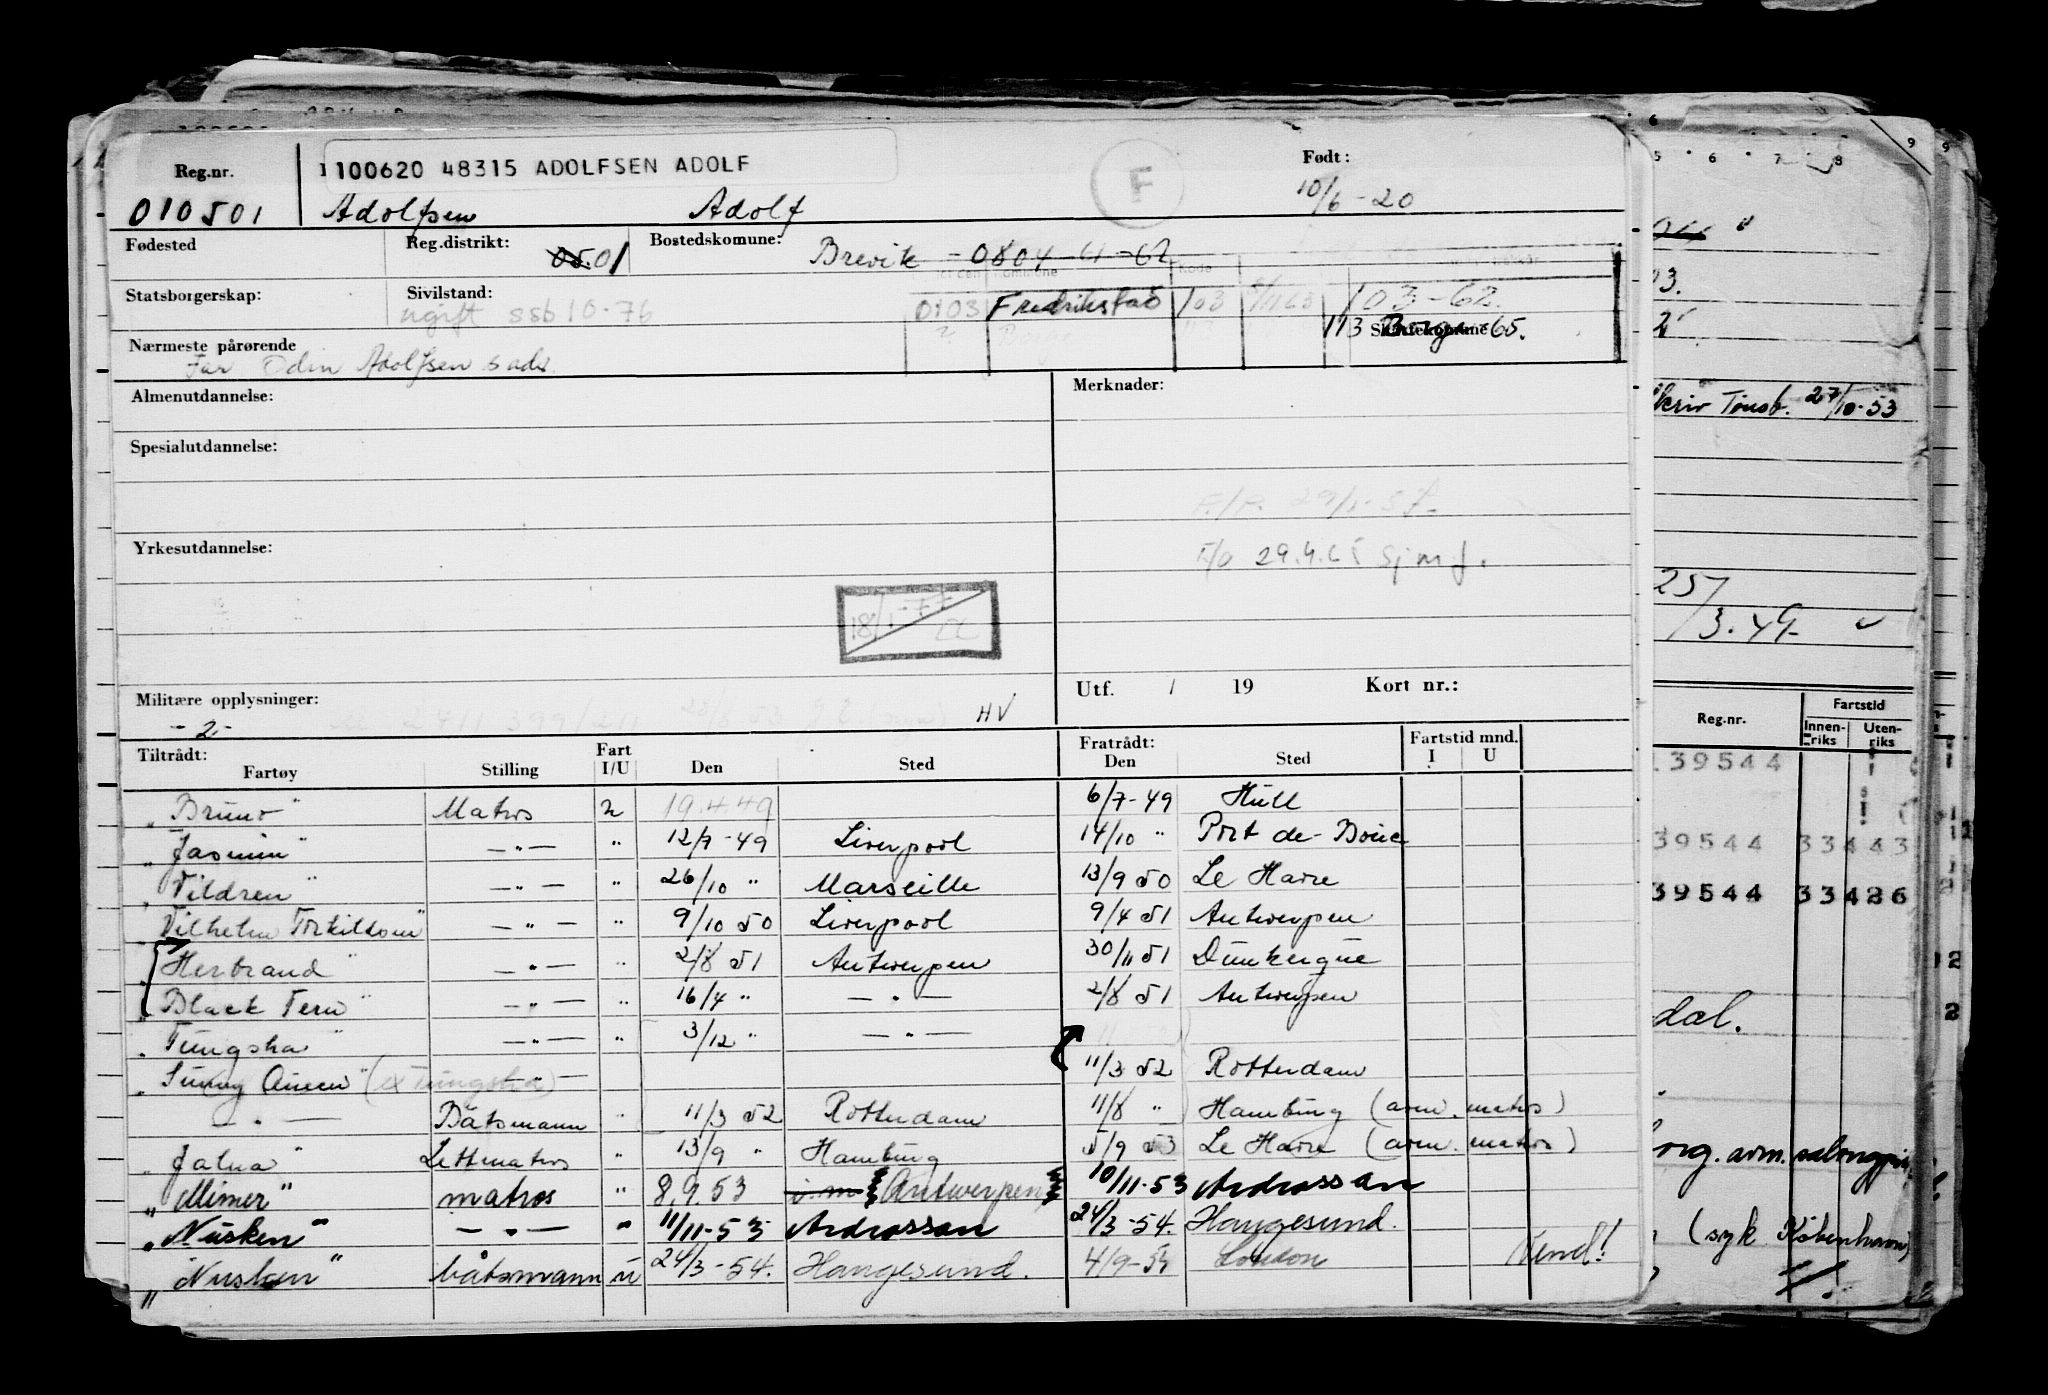 Reg.nr. 100620 48315 ADOLFSEN ADOLF F Født:
010501 Adolfsen Adolf 10/6-20
Fødested Reg.distrikt: 05 01 Bostedskomune: Brevik - 0804-61-62
Statsborgerskap: Sivilstand: 0103 Fredrikstad 103 103-62.
ugift ssb 10-76 113 65.
Nærmeste pårørende
Far Odin Adolfsen s adr.
Almenutdannelse: Merknader:
Spesialutdannelse:
F/P. 29/1-57.
Yrkesutdannelse: F/O 29.4.65 Sjmf.
18/1-77
Militære opplysninger: Utf. / 19 Kort nr.:
- 2 - HV
Tiltrådt: Fart Fratrådt: Fartstid mnd.
Fartøy Stilling I/U Den Sted Den Sted I U
"Bruno" Matros 2 19.4.49 6/7-49 Hull
"Jasmin" - " - " 12/7-49 Liverpool 14/10 " Port de Bouc
"Vildren" - " - " 26/10 " Marseille 13/9 50 Le Havre
"Vilhelm Torkildsen" - " - " 9/10 50 Liverpool 9/4 51 Antwerpen
"Herbrand" - " - " 2/8 51 Antwerpen 30/11 51 Dunkerque
"Black Tern" - " - " 16/4 " - " - 2/8 51 Antwerpen
"Tungsha" - " - " 3/12 " - " -
"Sunny Queen" (ex Tungsha) - " - 11/3 52 Rotterdam
- " - Båtsmann " 11/3 52 Rotterdam 11/8 " Hamburg (avm. matros)
"Jalna" Lettmatros " 13/9 " Hamburg 5/9 53 Le Havre (avm. matros)
"Mimer" matros " 8.9.53 Antwerpen 10/11-53 Ardrossan
"Nusken" - " - " 11/11-53 Ardrossan 24/3-54. Haugesund.
"Nusken" båtsmann u 24/3-54. Haugesund. 4/9-54 London Vend!
5 6 7 8 9 9
03.
Tønsb. 27/10-53
25/3.49
Reg.nr. Fartstid
Innen-riks Uten-riks
39544
39544 33443
39544 33426
dal.
(syk København)